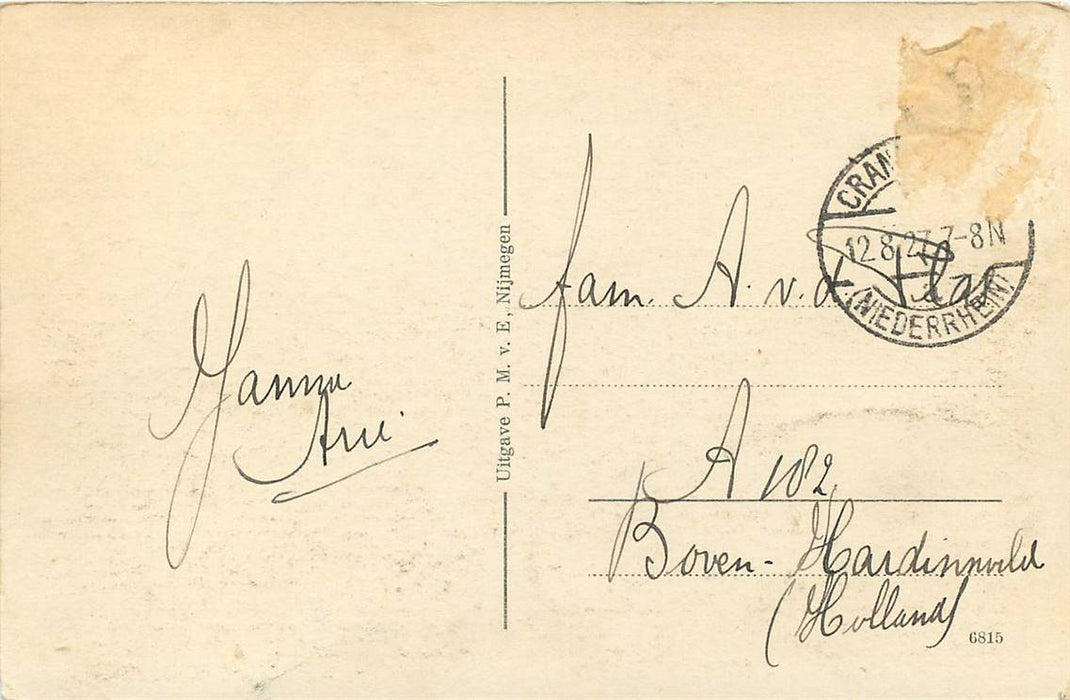 Hanna
Arie
Uitgave P. M. v. E, Nijmegen
CRAN
12.8.27.7-8N
(NIEDERRHEIN)
fam. A. v. d Flas
A 182
Boven- Hardinxveld
(Holland)
6815